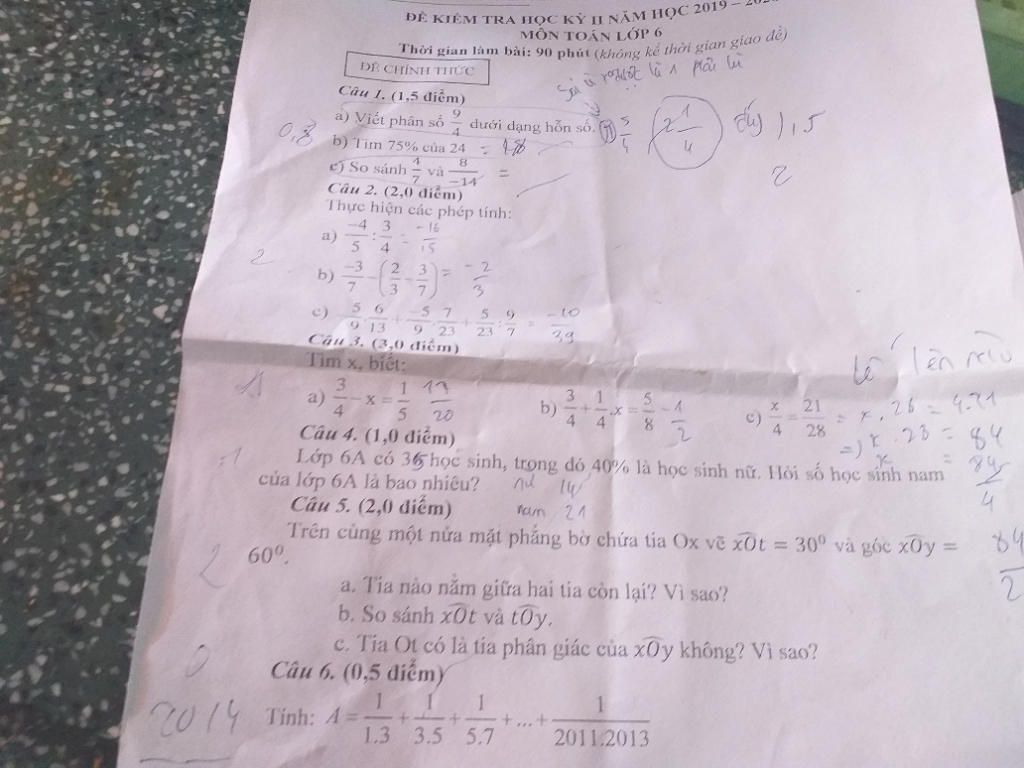 ĐỀ KIỂM TRA HỌC KỲ II NĂM HỌC 2019 –
MÔN TOÁN LỚP 6
Thời gian làm bài: 90 phút (không kể thời gian giao đề)
ĐỀ CHÍNH THỨC
Câu 1. (1,5 điểm)
a) Viết phân số 9/4 dưới dạng hỗn số. 5/4 2 1/4 1,5
0,8
b) Tìm 75% của 24 = 18
c) So sánh 4/7 và 8/-14 =
2
Câu 2. (2,0 điểm)
Thực hiện các phép tính:
a) -4/5 : 3/4 = -16/15
2
b) -3/7 - (2/3 - 3/7) = -2/3
c) -5/9 . 6/13 + -5/9 . 7/23 + 5/23 : 9/7 = -10/39
Câu 3. (3,0 điểm)
Tìm x, biết:
a) 3/4 - x = 1/5 11/20 b) 3/4 + 1/4 . x = 5/8 -1/2 c) x/4 = 21/28 = x . 28 = 4.21
=> x . 28 = 84
Câu 4. (1,0 điểm)
Lớp 6A có 35 học sinh, trong đó 40% là học sinh nữ. Hỏi số học sinh nam
của lớp 6A là bao nhiêu? nữ 14
x = 84/4
nam 21
Câu 5. (2,0 điểm)
Trên cùng một nửa mặt phẳng bờ chứa tia Ox vẽ xOt = 30⁰ và góc xOy =
84/2
2
60⁰.
a. Tia nào nằm giữa hai tia còn lại? Vì sao?
b. So sánh xOt và tOy.
c. Tia Ot có là tia phân giác của xOy không? Vì sao?
0
Câu 6. (0,5 điểm)
2014
Tính: A = 1/1.3 + 1/3.5 + 1/5.7 + ... + 1/2011.2013